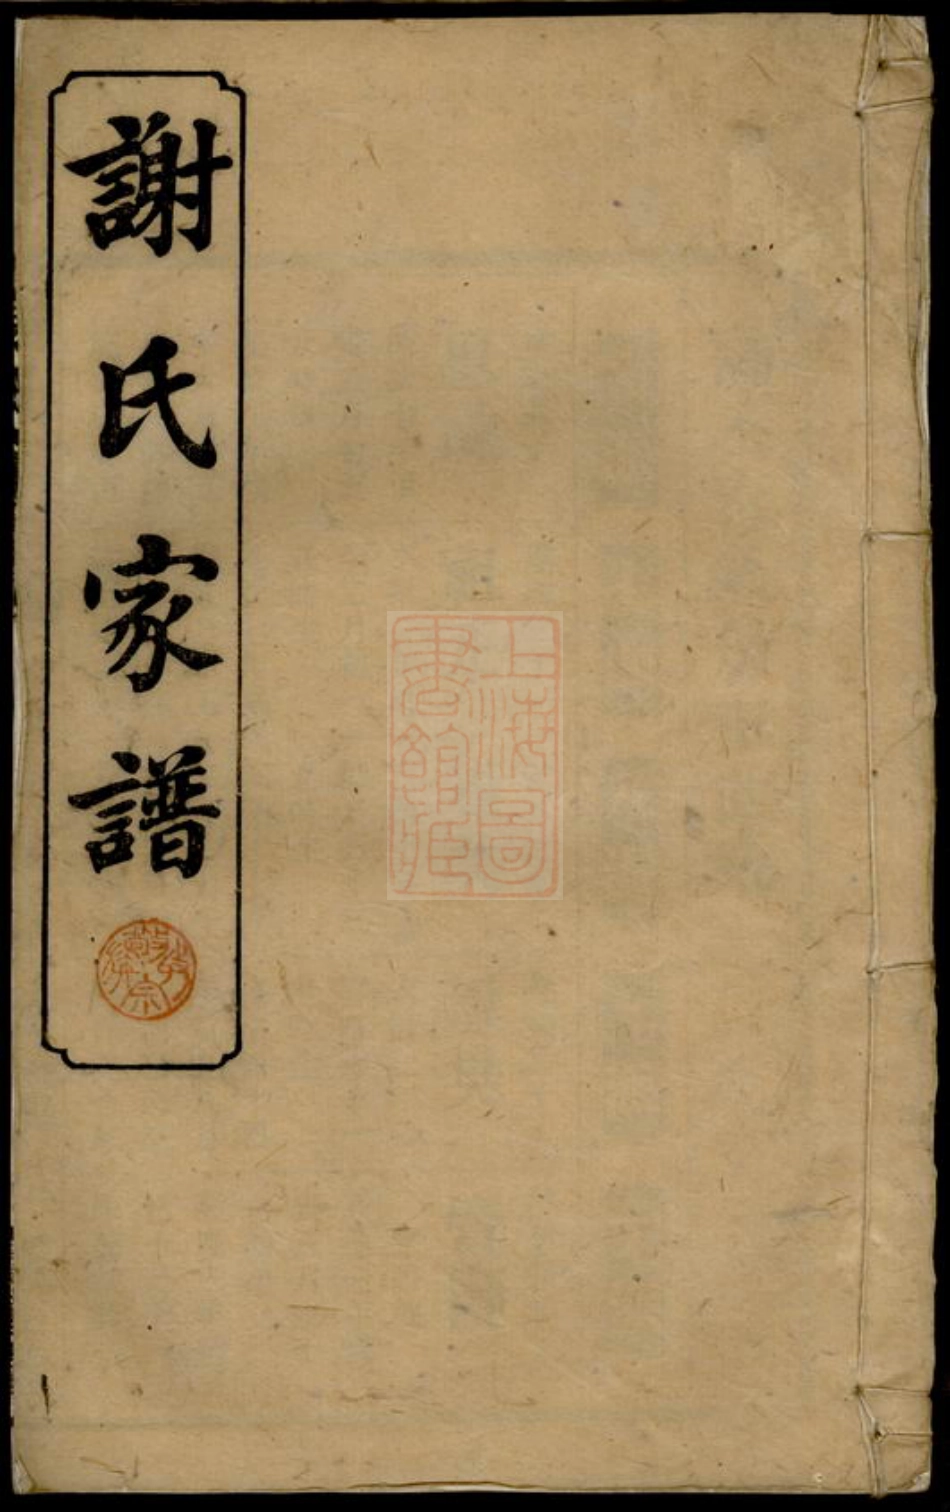 謝氏家譜
上海圖
書館藏